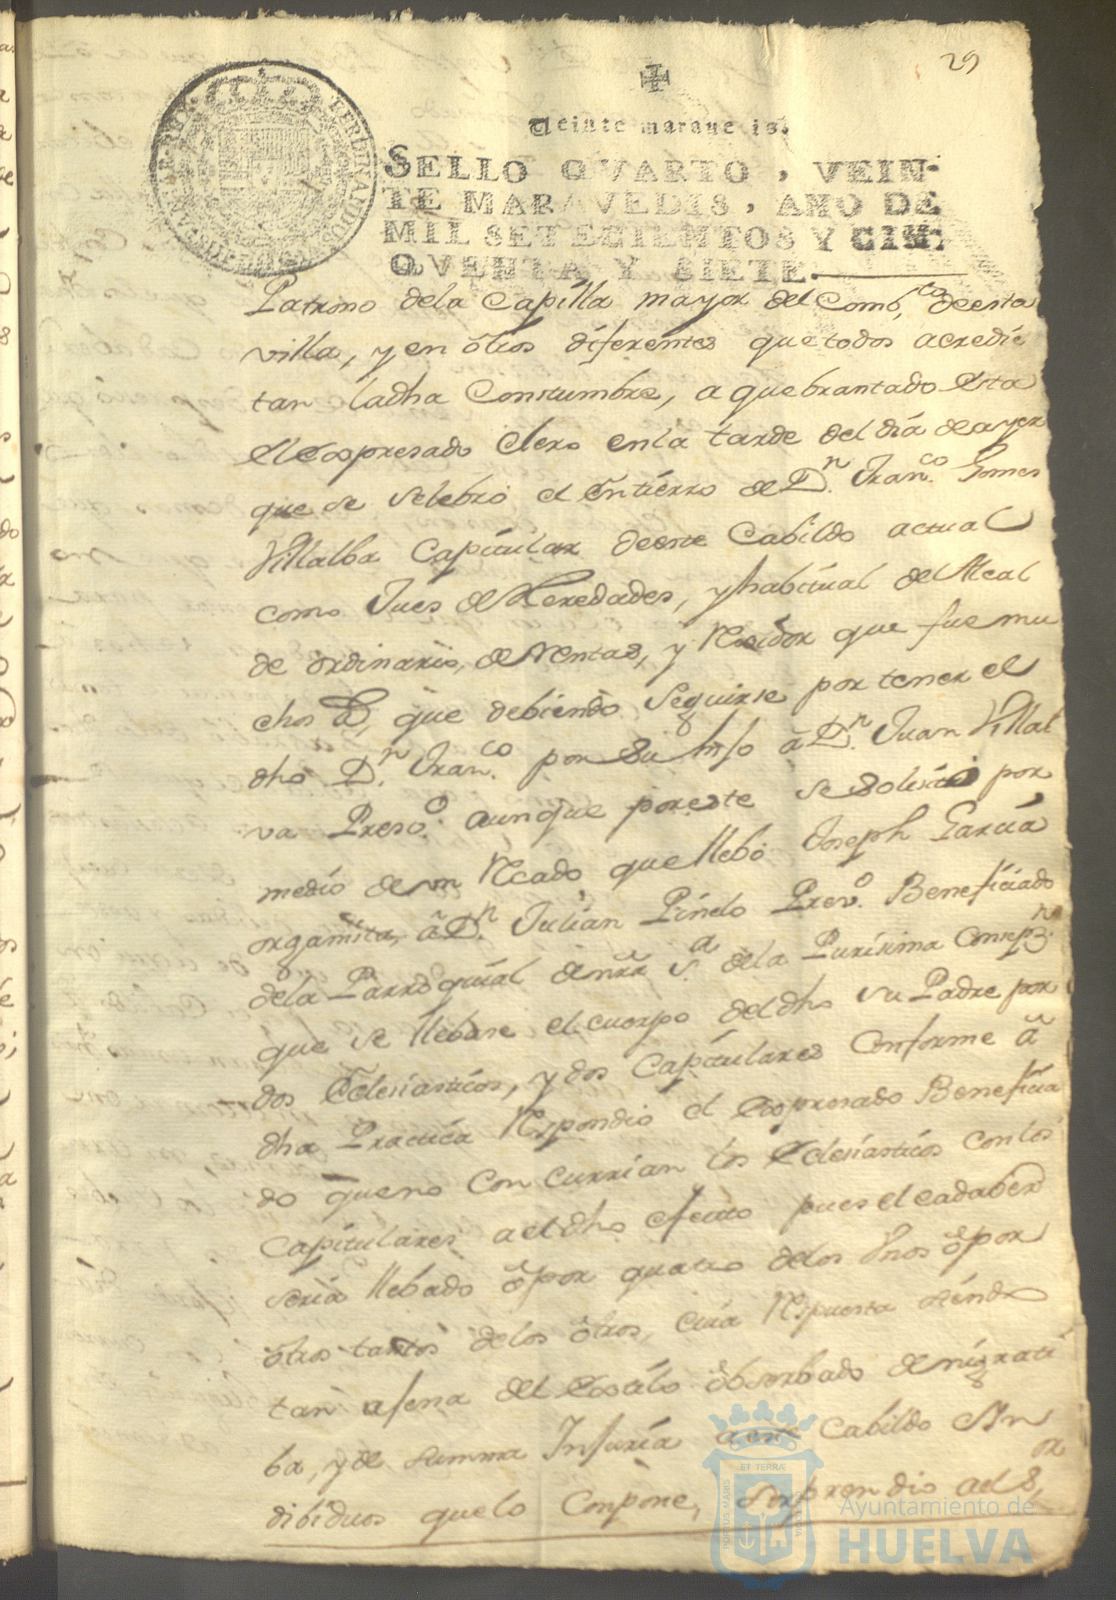 29
Veinte maravedis.
SELLO QVARTO, VEIN-
TE MARAVEDIS, AÑO DE
MIL SETECIENTOS Y CIN-
QVENTA Y SIETE.
Patrono dela Capilla mayor del Comb.to deesta
villa, y en ôtros diferentes que todos acredi
tan ladha Constumbre, a quebrantado esta
el expresado Clero enla tarde del dia de ayer
que se selebro el Entierro de Dn. Franco. Gomes
Villalba Capitular deeste Cabildo actual
como Jues de Heredades, y habitual de Alcal
de ordinario, de Rentas, y Rexidor que fue mu
chos âs, que debiendo seguirse por tener el
dho Dn. Franco. por su hijo â Dn. Juan Villal
va Presvo. aunque poreste se solisitô por
medio de un Recado que llebô Joseph Garcia
organista, â Dn. Julian Pinelo Presvo. Beneficiado
dela Parroquial de nra Sa. dela Purisima Consepn.
que se llebase el cuerpo del dho su Padre por
dos Eclesiasticos, y dos Capitulares conforme â
dha Practica Respondio el expresado Beneficia
do que no concurrian los Eclesiasticos con los
Capitulares a el dho efecto pues el cadaber
seria llebado ô por quatro delos Unos ô por
ôtros tantos delos ôtros, cuia Respuesta siendo
tan ajena del estilo ôbserbado denigrati
ba, y de summa Injuria a este Cabildo e In
dibiduos quelo Conpone, sorprendio al Sor.
Ayuntamiento de
HUELVA